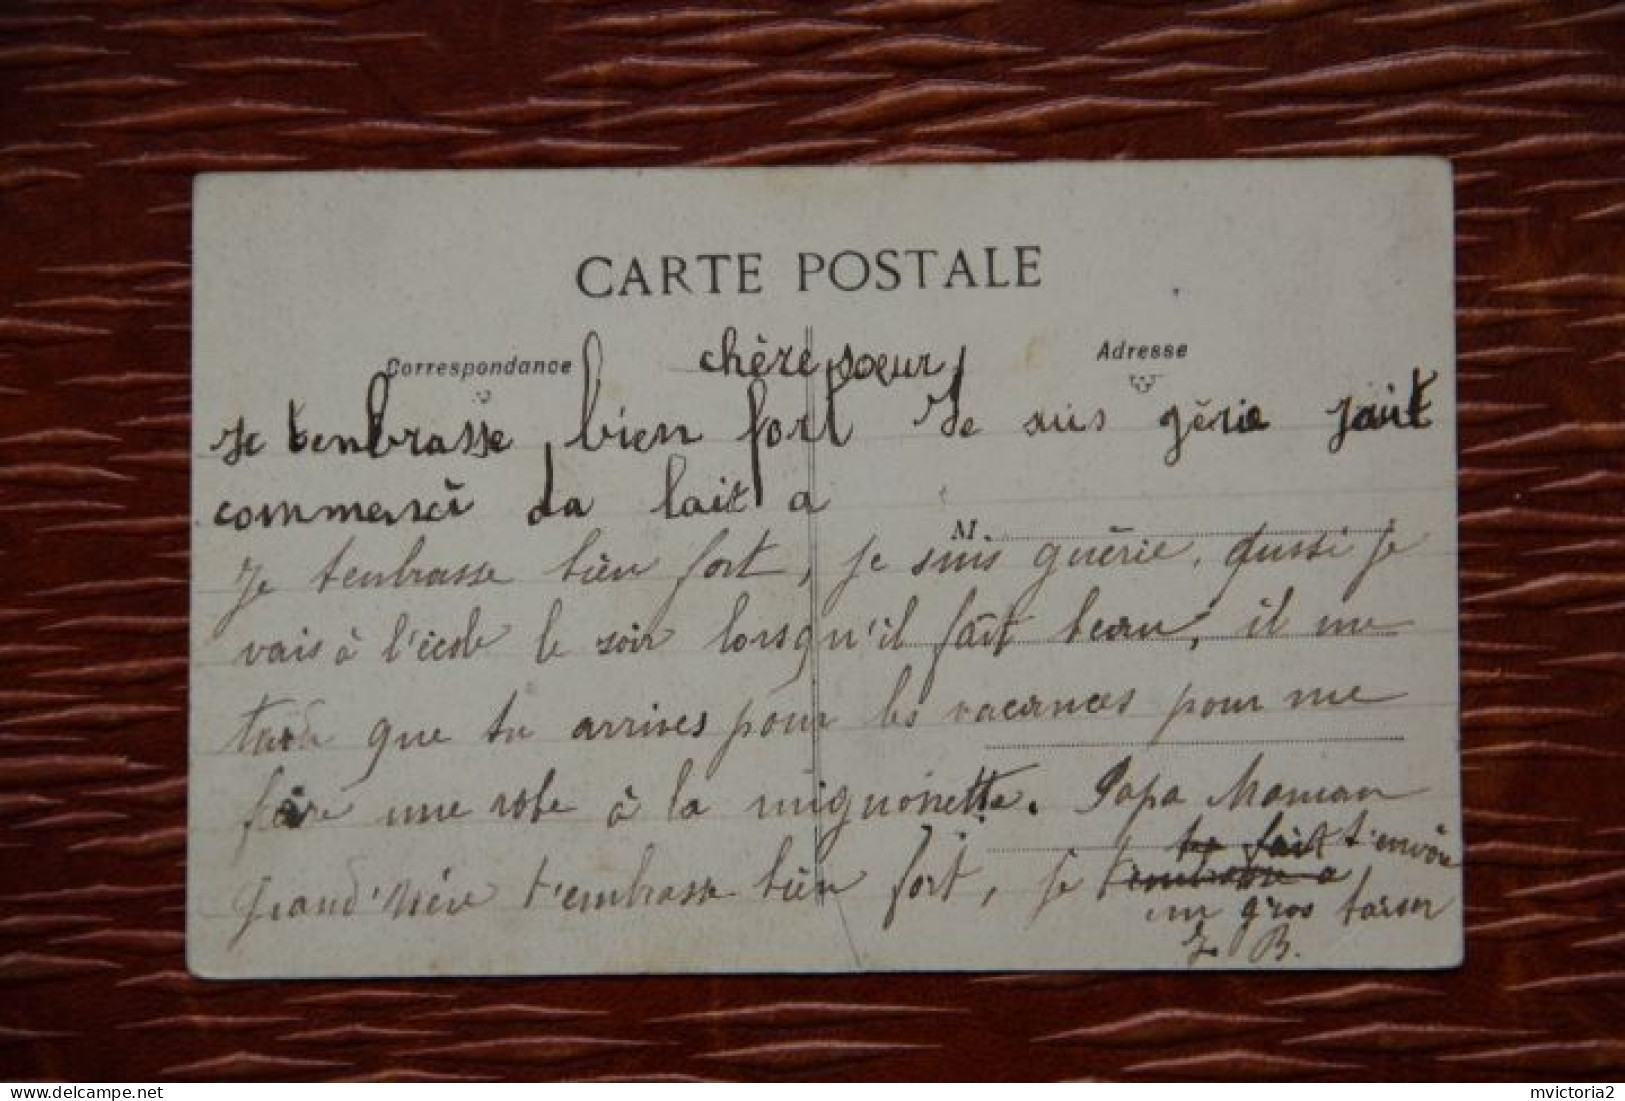 CARTE POSTALE
Correspondance
Adresse
chère sœur,
Je tenbrasse bien fort Je suis gérie jait
commensé da lait a
M.
Je tenbrasse bièn fort, je suis guèrie, aussi je
vais à l'école le soir lorsqu'il faît beau, il me
tarde que tu arrives pour les vacances pour me
faire une robe à la mignonette. Papa Maman
t'envôie
grand'Mère t'embrasse bièn fort, je
un gros
B.
delcampe.net
mvictoria2